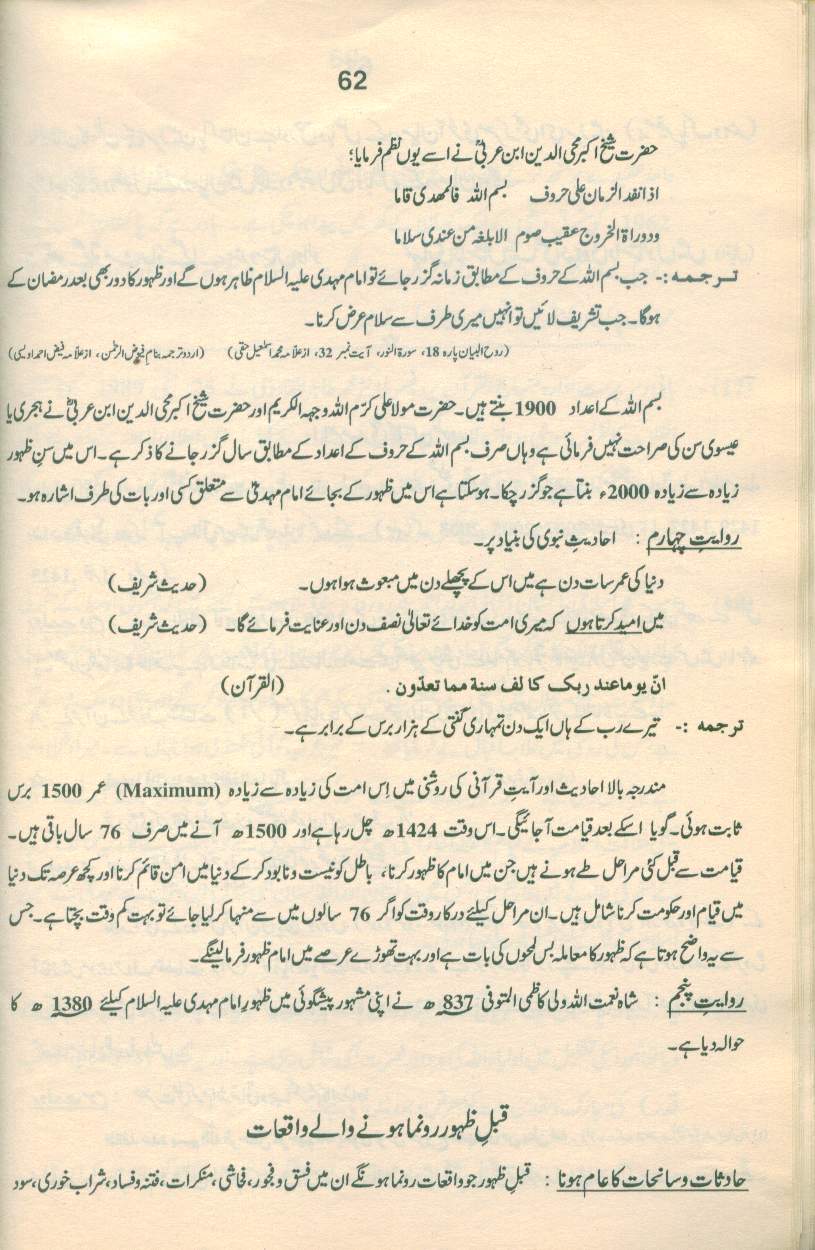 62
حضرت شیخ اکبر محی الدین ابن عربیؒ نے اسے یوں نظم فرمایا؛
اذا نفد الزمان علی حروف بسم اللہ فالمھدی قاما
ودوراۃ الخروج عقیب صوم الا بلغہ من عندی سلاما
ترجمہ :- جب بسم اللہ کے حروف کے مطابق زمانہ گزر جائے تو امام مہدی علیہ السلام ظاہر ہوں گے اور ظہور کا دور بھی بعد رمضان کے
ہوگا۔ جب تشریف لائیں تو انہیں میری طرف سے سلام عرض کرنا۔
(روح البیان پارہ 18، سورۃ النور، آیت نمبر 32، از علامہ محمد اسمٰعیل حقی) (اردو ترجمہ بنام فیوض الرحمٰن، از علامہ فیض احمد اویسی)
بسم اللہ کے اعداد 1900 بنتے ہیں۔ حضرت مولا علی کرّم اللہ وجہہ الکریم اور حضرت شیخ اکبر محی الدین ابن عربیؒ نے ہجری یا
عیسوی سن کی صراحت نہیں فرمائی ہے وہاں صرف بسم اللہ کے حروف کے اعداد کے مطابق سال گزر جانے کا ذکر ہے۔ اس میں سنِ ظہور
زیادہ سے زیادہ 2000ء بنتا ہے جو گزر چکا۔ ہوسکتا ہے اس میں ظہور کے بجائے امام مہدیؑ سے متعلق کسی اور بات کی طرف اشارہ ہو۔
روایتِ چہارم : احادیثِ نبوی کی بنیاد پر۔
دنیا کی عمر سات دن ہے میں اس کے پچھلے دن میں مبعوث ہوا ہوں۔ (حدیث شریف)
میں امید کرتا ہوں کہ میری امت کو خدائے تعالیٰ نصف دن اور عنایت فرمائے گا۔ (حدیث شریف)
انّ یوما عند ربک کا لف سنۃ مما تعدّون . (القرآن)
ترجمہ :- تیرے رب کے ہاں ایک دن تمہاری گنتی کے ہزار برس کے برابر ہے۔
مندرجہ بالا احادیث اور آیتِ قرآنی کی روشنی میں اِس امت کی زیادہ سے زیادہ (Maximum) عمر 1500 برس
ثابت ہوئی۔ گویا اسکے بعد قیامت آجائیگی۔ اس وقت 1424ھ چل رہا ہے اور 1500ھ آنے میں صرف 76 سال باقی ہیں۔
قیامت سے قبل کئی مراحل طے ہونے ہیں جن میں امام کا ظہور کرنا، باطل کو نیست و نابود کر کے دنیا میں امن قائم کرنا اور کچھ عرصہ تک دنیا
میں قیام اور حکومت کرنا شامل ہیں۔ ان مراحل کیلئے درکار وقت کو اگر 76 سالوں میں سے منہا کرلیا جائے تو بہت کم وقت بچتا ہے۔ جس
سے یہ واضح ہوتا ہے کہ ظہور کا معاملہ بس لمحوں کی بات ہے اور بہت تھوڑے عرصے میں امام ظہور فرمالینگے۔
روایتِ پنجم : شاہ نعمت اللہ ولی کاظمی المتوفی 837 ھ نے اپنی مشہور پیشگوئی میں ظہورِ امام مہدی علیہ السلام کیلئے 1380 ھ کا
حوالہ دیا ہے۔
قبلِ ظہور رونما ہونے والے واقعات
حادثات و سانحات کا عام ہونا : قبلِ ظہور جو واقعات رونما ہونگے ان میں فسق و فجور، فحاشی، منکرات، فتنہ و فساد، شراب خوری، سود